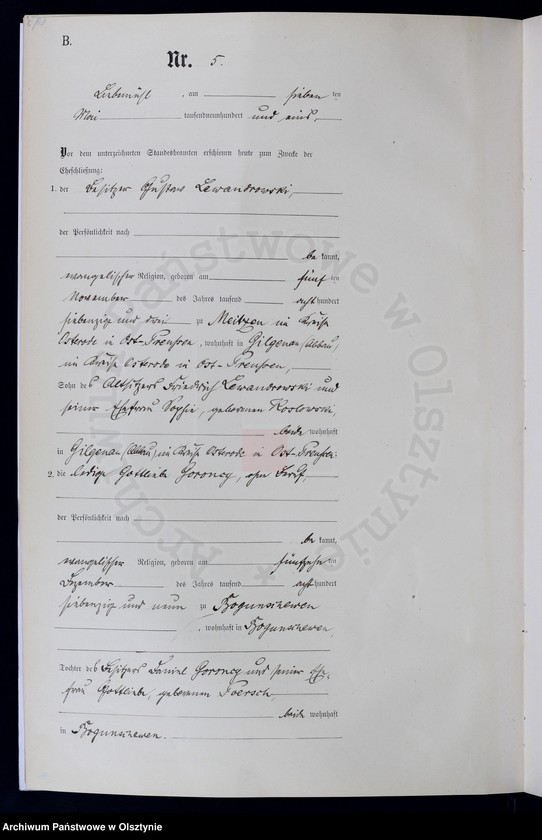 B.
Nr. 5.
Liebemühl, am sieben ten
Mai tausendneunhundert und eins.
Vor dem unterzeichneten Standesbeamten erschienen heute zum Zwecke der
Eheschließung:
1. der Besitzer Gustav Lewandrowski,
der Persönlichkeit nach
be kannt,
evangelischer Religion, geboren am fünf ten
November des Jahres tausend acht hundert
siebenzig und drei zu Meitzen im Kreise
Osterode in Ost-Preußen, wohnhaft in Gilgenau (Abbau)
im Kreise Osterode in Ost-Preußen,
Sohn des Altsitzers Friedrich Lewandrowski und
seiner Ehefrau Sophie, geborenen Koslowski,
beide wohnhaft
in Gilgenau (Abbau) im Kreise Osterode in Ost-Preußen;
2. die ledige Gottliebe Goroncy, ohne Beruf,
der Persönlichkeit nach
be kannt,
evangelischer Religion, geboren am fünfzehn ten
Dezember des Jahres tausend acht hundert
siebenzig und neun zu Bogunschewen
, wohnhaft in Bogunschewen,
Tochter des Besitzers Daniel Goroncy und seiner Ehe-
frau Gottliebe, geborenen
beide wohnhaft
in Bogunschewen.
Archiwum Państwowe w Olsztynie
Archiwum Państwowe w Olsztynie